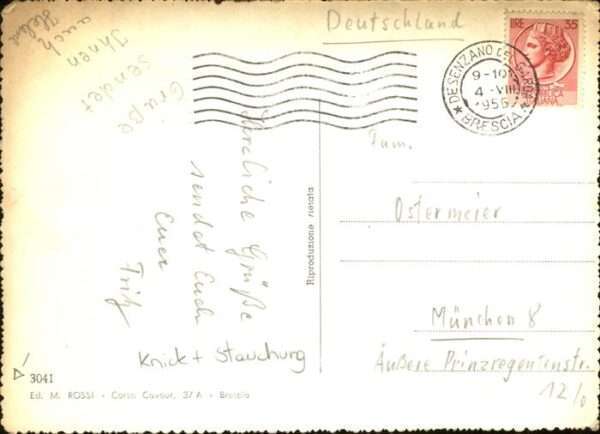 Deutschland
IRE 35
DESENZANO DEL GARDA
9-10
4 - VIII
1956
★ BRESCIA ★
Grüße
sendet
Ihnen
auch
Herzliche Grüße
sendet Euch
Euer
Fritz
Knick + Stauchung
Riproduzione vietata
Fam.
Ostermeier
München 8
Äußere Prinzregentenstr.
12/0
3041
Ed. M. ROSSI - Corso Cavour, 37 A - Brescia